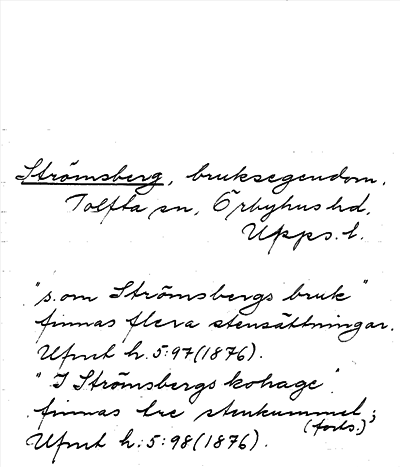 Strömsberg, bruksegendom.
Tolfta sn, Örbyhus hd,
Upps. l.
"s. om Strömsbergs bruk"
finnas flera stensättningar.
Ufmt h. 5:97 (1876).
"I Strömsbergs kohage"
finnas tre stenkummel;
(forts.)
Ufmt h: 5: 98 (1876).